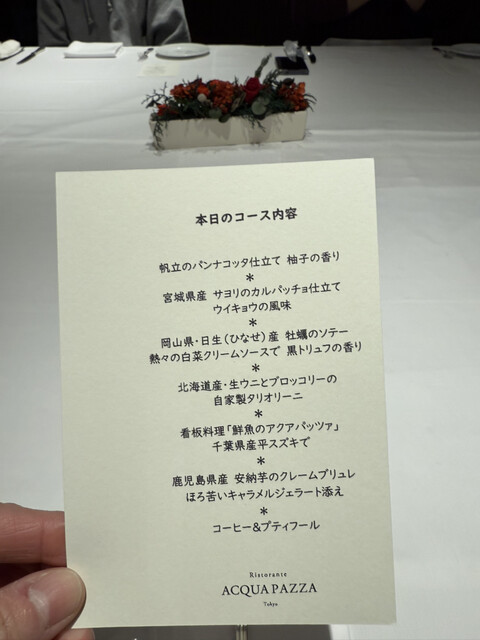 本日のコース内容
帆立のパンナコッタ仕立て 柚子の香り
*
宮城県産 サヨリのカルパッチョ仕立て
ウイキョウの風味
*
岡山県・日生(ひなせ)産 牡蠣のソテー
熱々の白菜クリームソースで 黒トリュフの香り
*
北海道産・生ウニとブロッコリーの
自家製タリオリーニ
*
看板料理「鮮魚のアクアパッツァ」
千葉県産平スズキで
*
鹿児島県産 安納芋のクレームブリュレ
ほろ苦いキャラメルジェラート添え
*
コーヒー&プティフール
Ristorante
ACQUA PAZZA
Tokyo